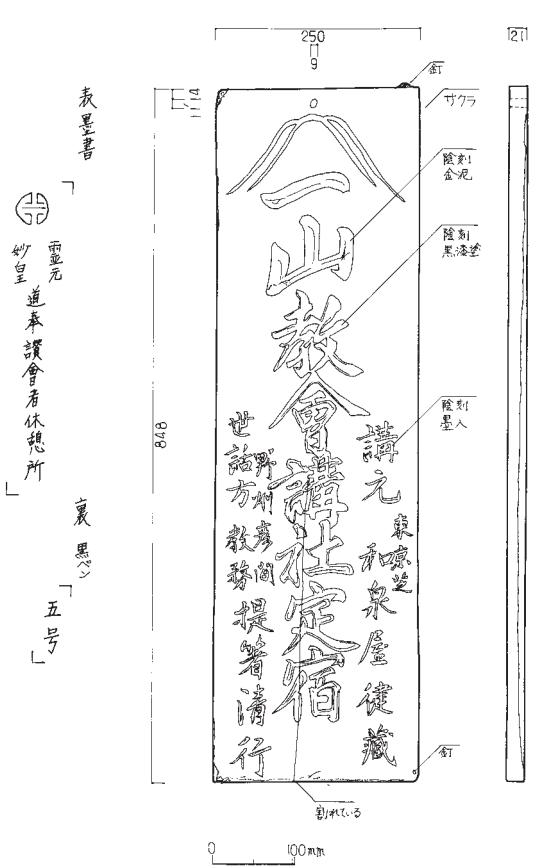 250
9
21
14
11
釘
サクラ
陰刻
金泥
陰刻
黒漆塗
陰刻
墨入
848
一山教會講社定宿
講元
東京芝
和泉屋
藏
世話方
野州
教務
行
釘
割れている
0 100mm
表墨書
「
靈元
妙皇
道奉讃會者休憩所
」
裏 黒ペン
「五号」